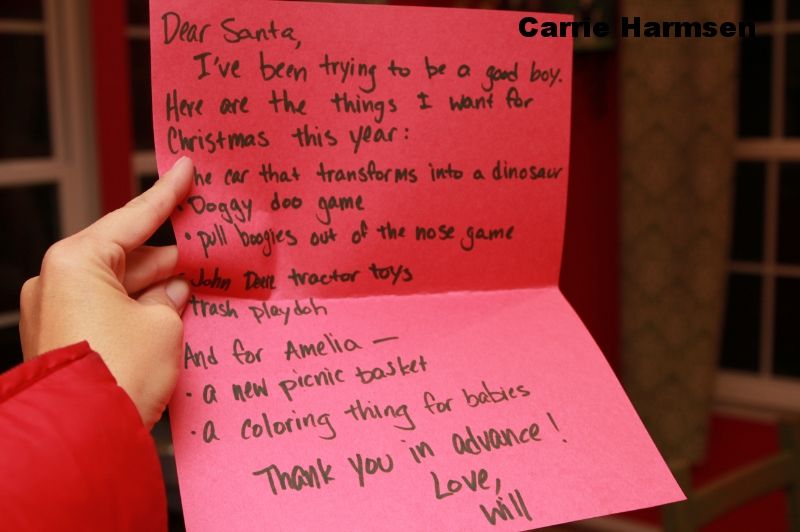 Carrie Harmsen
Dear Santa,
I've been trying to be a good boy.
Here are the things I want for
Christmas this year:
he car that transforms into a dinosaur
• Doggy doo game
• pull boogies out of the nose game
• John Deere tractor toys
trash playdoh
And for Amelia —
• a new picnic basket
• a coloring thing for babies
Thank you in advance!
Love,
Will